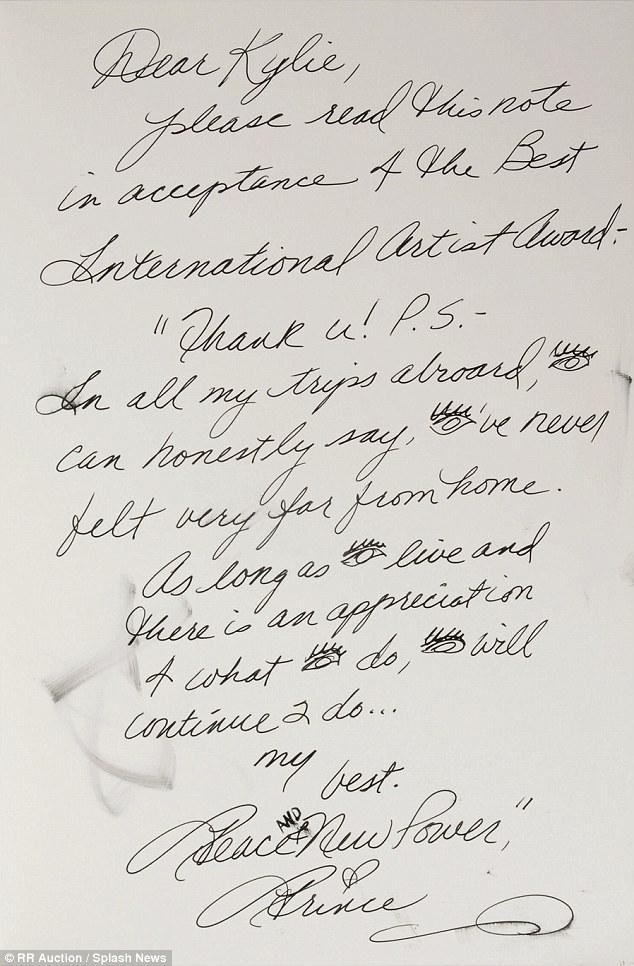 Dear Kylie,
please read this note
in acceptance 4 the Best
International Artist Award:-
"Thank u! P.S.-
In all my trips abroard, 👁
can honestly say, 👁've never
felt very far from home.
As long as 👁 live and
there is an appreciation
4 what 👁 do, 👁 will
continue 2 do...
my
best.
Peace AND New Power,"
Prince
© RR Auction / Splash News